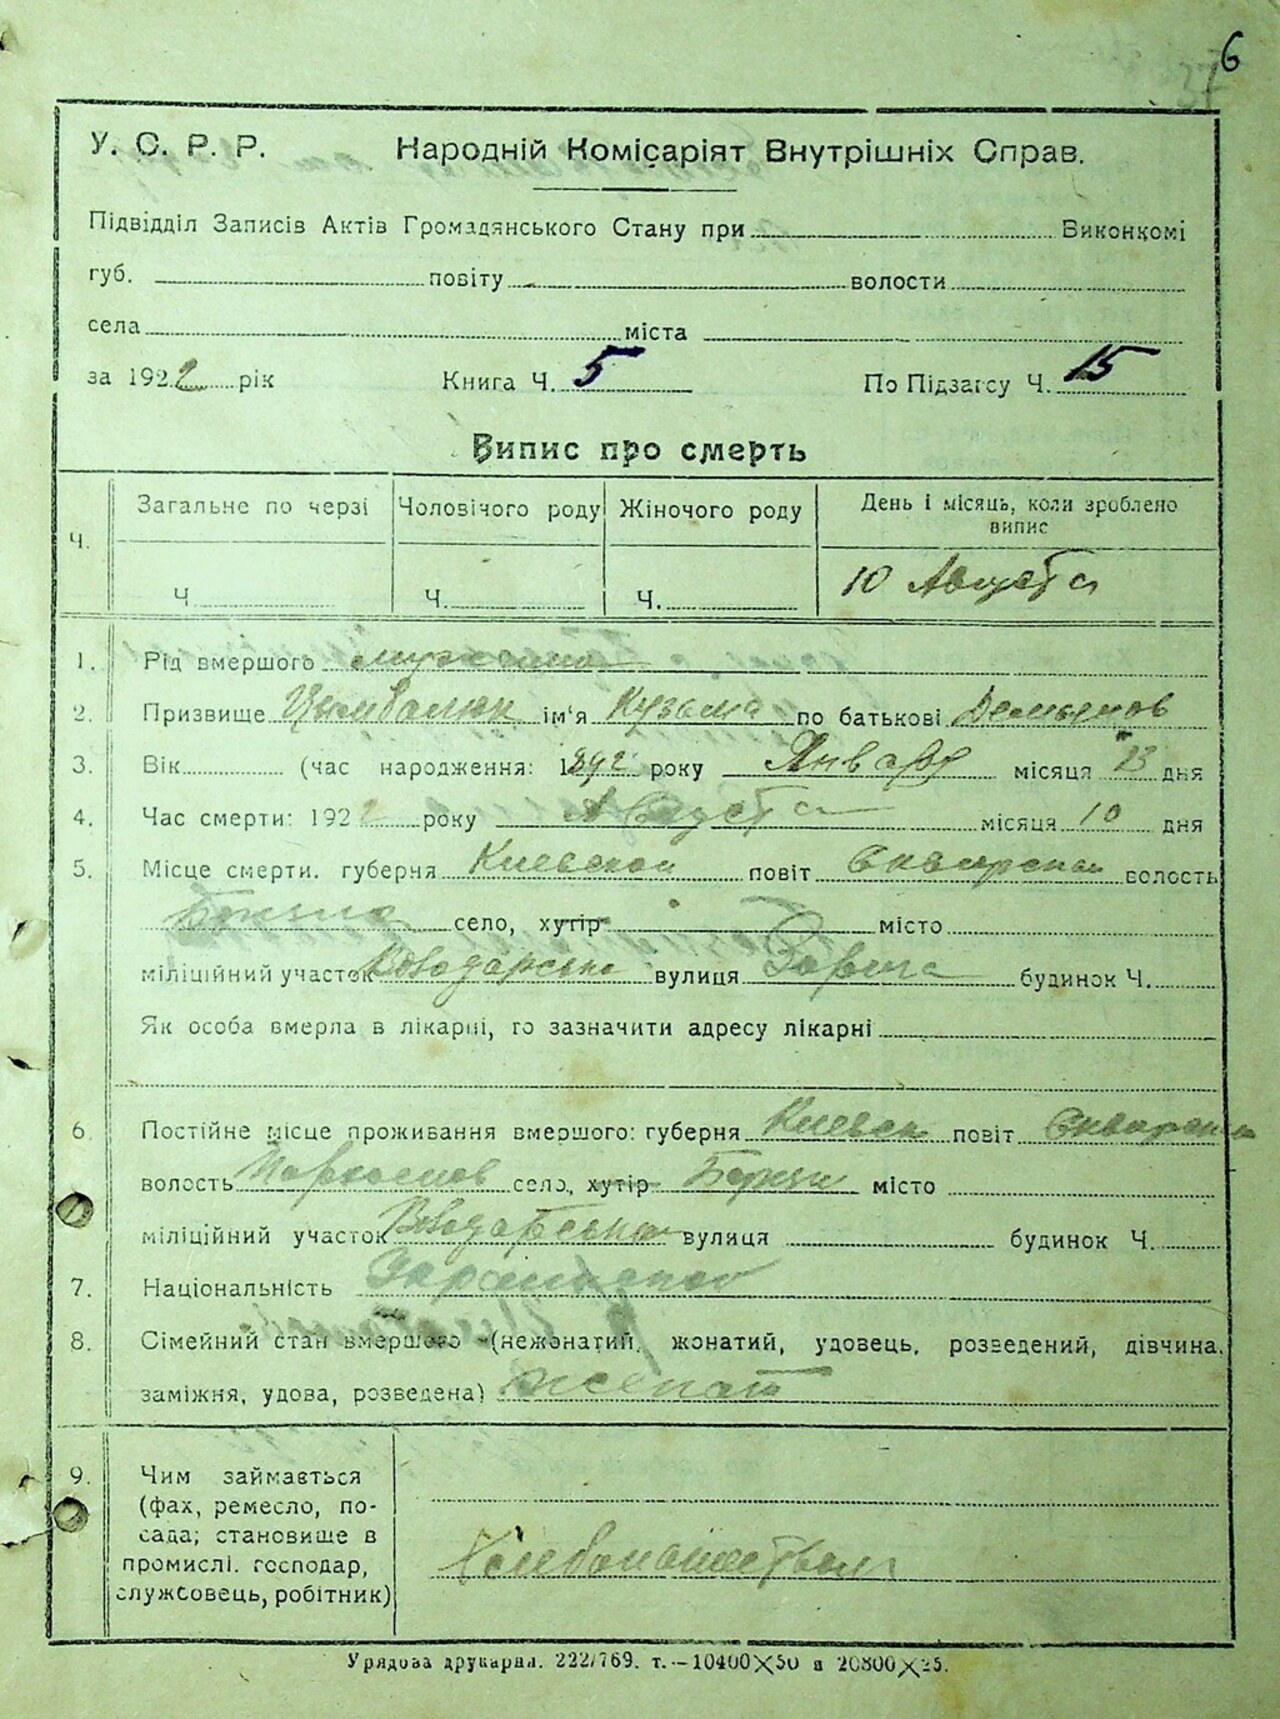 6
37
У. С. Р. Р. Народній Комісаріят Внутрішніх Справ.
Підвідділ Записів Актів Громадянського Стану при Виконкомі
губ. повіту волости
села міста
за 1922 рік Книга Ч. 5 По Підзагсу Ч. 15
Випис про смерть
Ч. Загальне по черзі Чоловічого роду Жіночого роду День і місяць, коли зроблено
випис
Ч. Ч. Ч. 10 Августа
1. Рід вмершого мужчина
2. Призвище Цымбалюк ім'я Кузьма по батькові Демьянов
3. Вік (час народження: 1892 року Января місяця 13 дня
4. Час смерти: 1922 року Августа місяця 10 дня
5. Місце смерти. губерня Киевской повіт Сквирский волость
село, хутір місто
міліційний участок Володарська вулиця будинок Ч.
Як особа вмерла в лікарні, го зазначити адресу лікарні
6. Постійне місце проживання вмершого: губерня Киевск повіт
волость село, хутір місто
міліційний участок Володарська вулиця будинок Ч.
7. Національність
8. Сімейний стан вмершого (нежонатий, жонатий, удовець, розведений, дівчина,
заміжня, удова, розведена) женат
9. Чим займається
(фах, ремесло, по-
сада; становище в
промислі. господар,
служсовець, робітник) Хлебопашеством
Урядова друкарня. 222/769. т.—10400×50 а 20800×25.